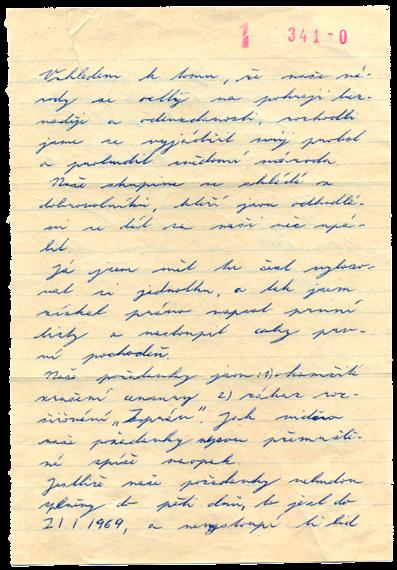 1 341-0
Vzhledem k tomu, že naše ná-
rody se octly na pokraji bez-
naděje a odevzdanosti, rozhodli
jsme se vyjádřit svůj protest
a probudit svědomí národa.
Naše skupina se skládá z
dobrovolníků, kteří jsou odhodlá-
ni se dát za naši věc upá-
lit.
Já jsem měl tu čest vyloso-
vat si jednotku, a tak jsem
získal právo napsat první
listy a nastoupit coby prv-
ní pochodeň.
Naše požadavky jsou: 1) okamžité
zrušení cenzury 2) zákaz roz-
šiřování „Zpráv". Jak vidíte
naše požadavky nejsou přemršti-
né spíše naopak.
Jestliže naše požadavky nebudou
splněny do pěti dnů, to jest do
21.1.1969, a nevystoupí-li lid